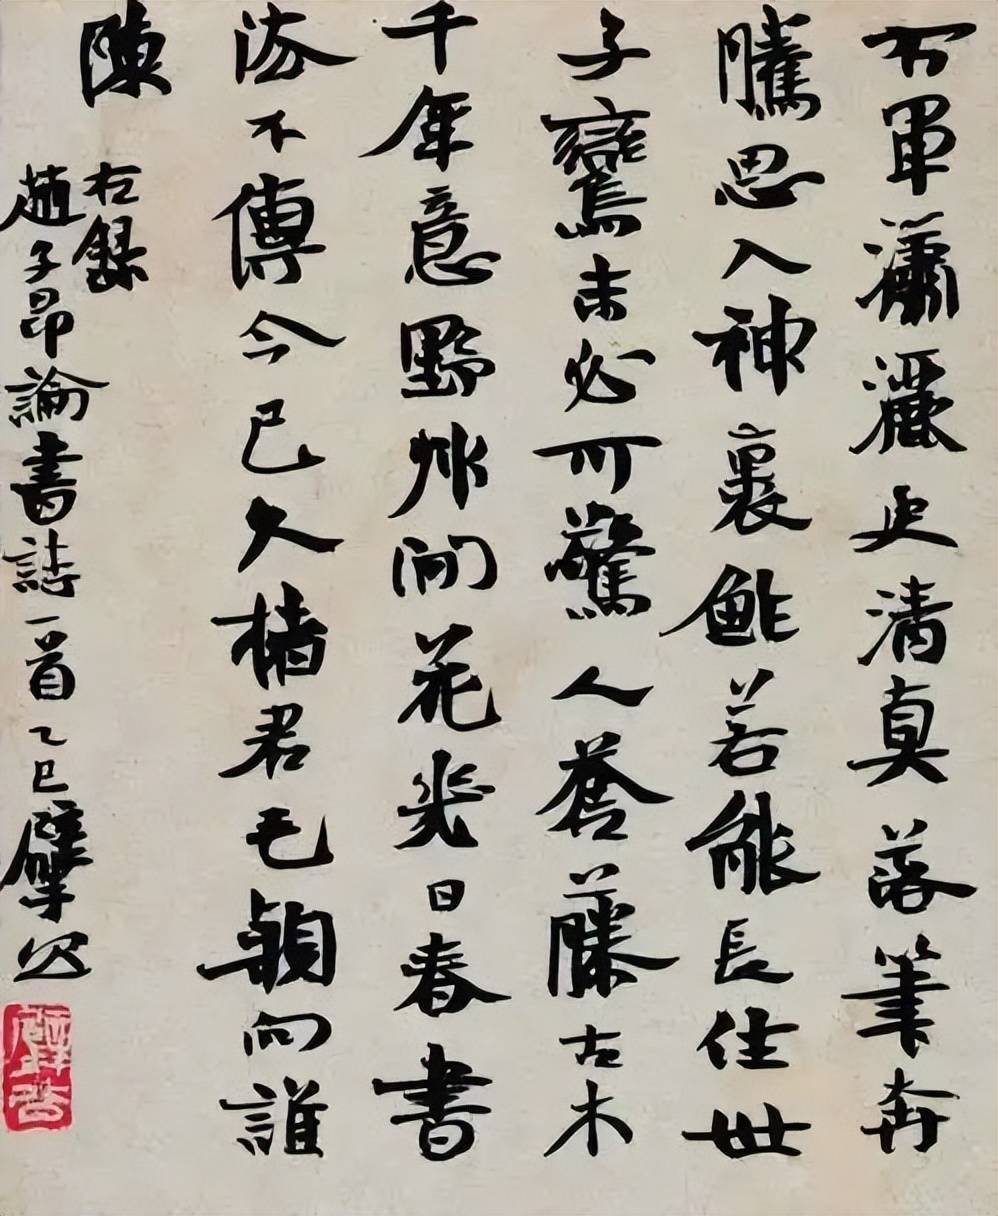 右軍瀟灑更清真落筆奔
騰思入神裹鮓若能長住世
子鸞未必可驚人蒼藤古木
千年意野艸間花幾日春書
法不傳今已久楮君毛穎向誰
陳
右錄
趙子昂論書詩一首乙巳擘